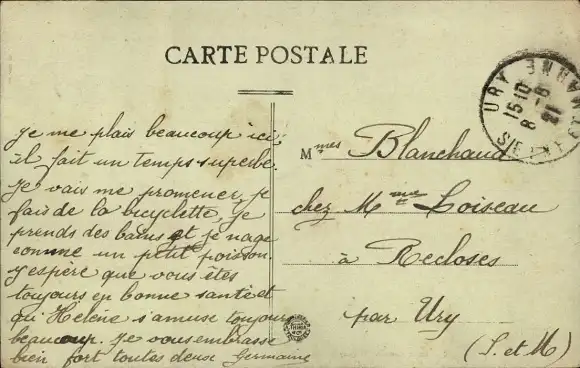 CARTE POSTALE
Je me plais beaucoup ici,
il fait un temps superbe.
Je vais me promener, je
fais de la bicyclette, je
prends des bains et je nage
comme un petit poisson.
J'espère que vous êtes
toujours en bonne santé et
qu'Helène s'amuse toujours
beaucoup. Je vous embrasse
bien fort toutes deux Germaine
Mmes Blanchaud
chez Mme Loiseau
à Recloses
par Ury
(S. et M)
URY
15-10
8 -8
21